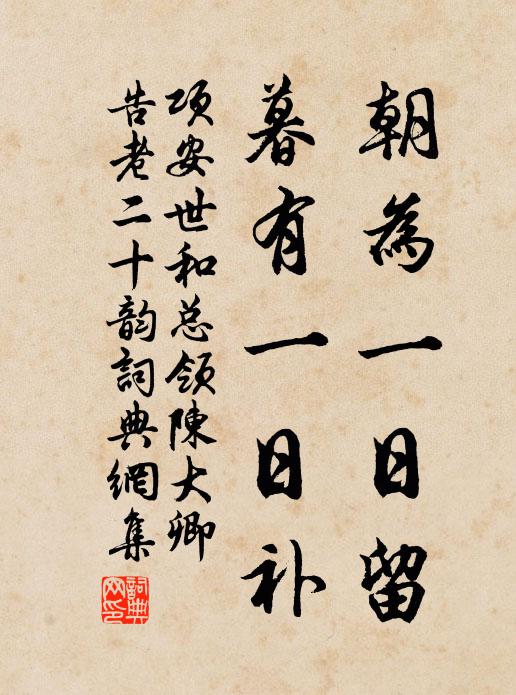 朝為一日留
暮有一日补
项安世和总领陳大卿
告老二十韵詞典網集
詞典
网印